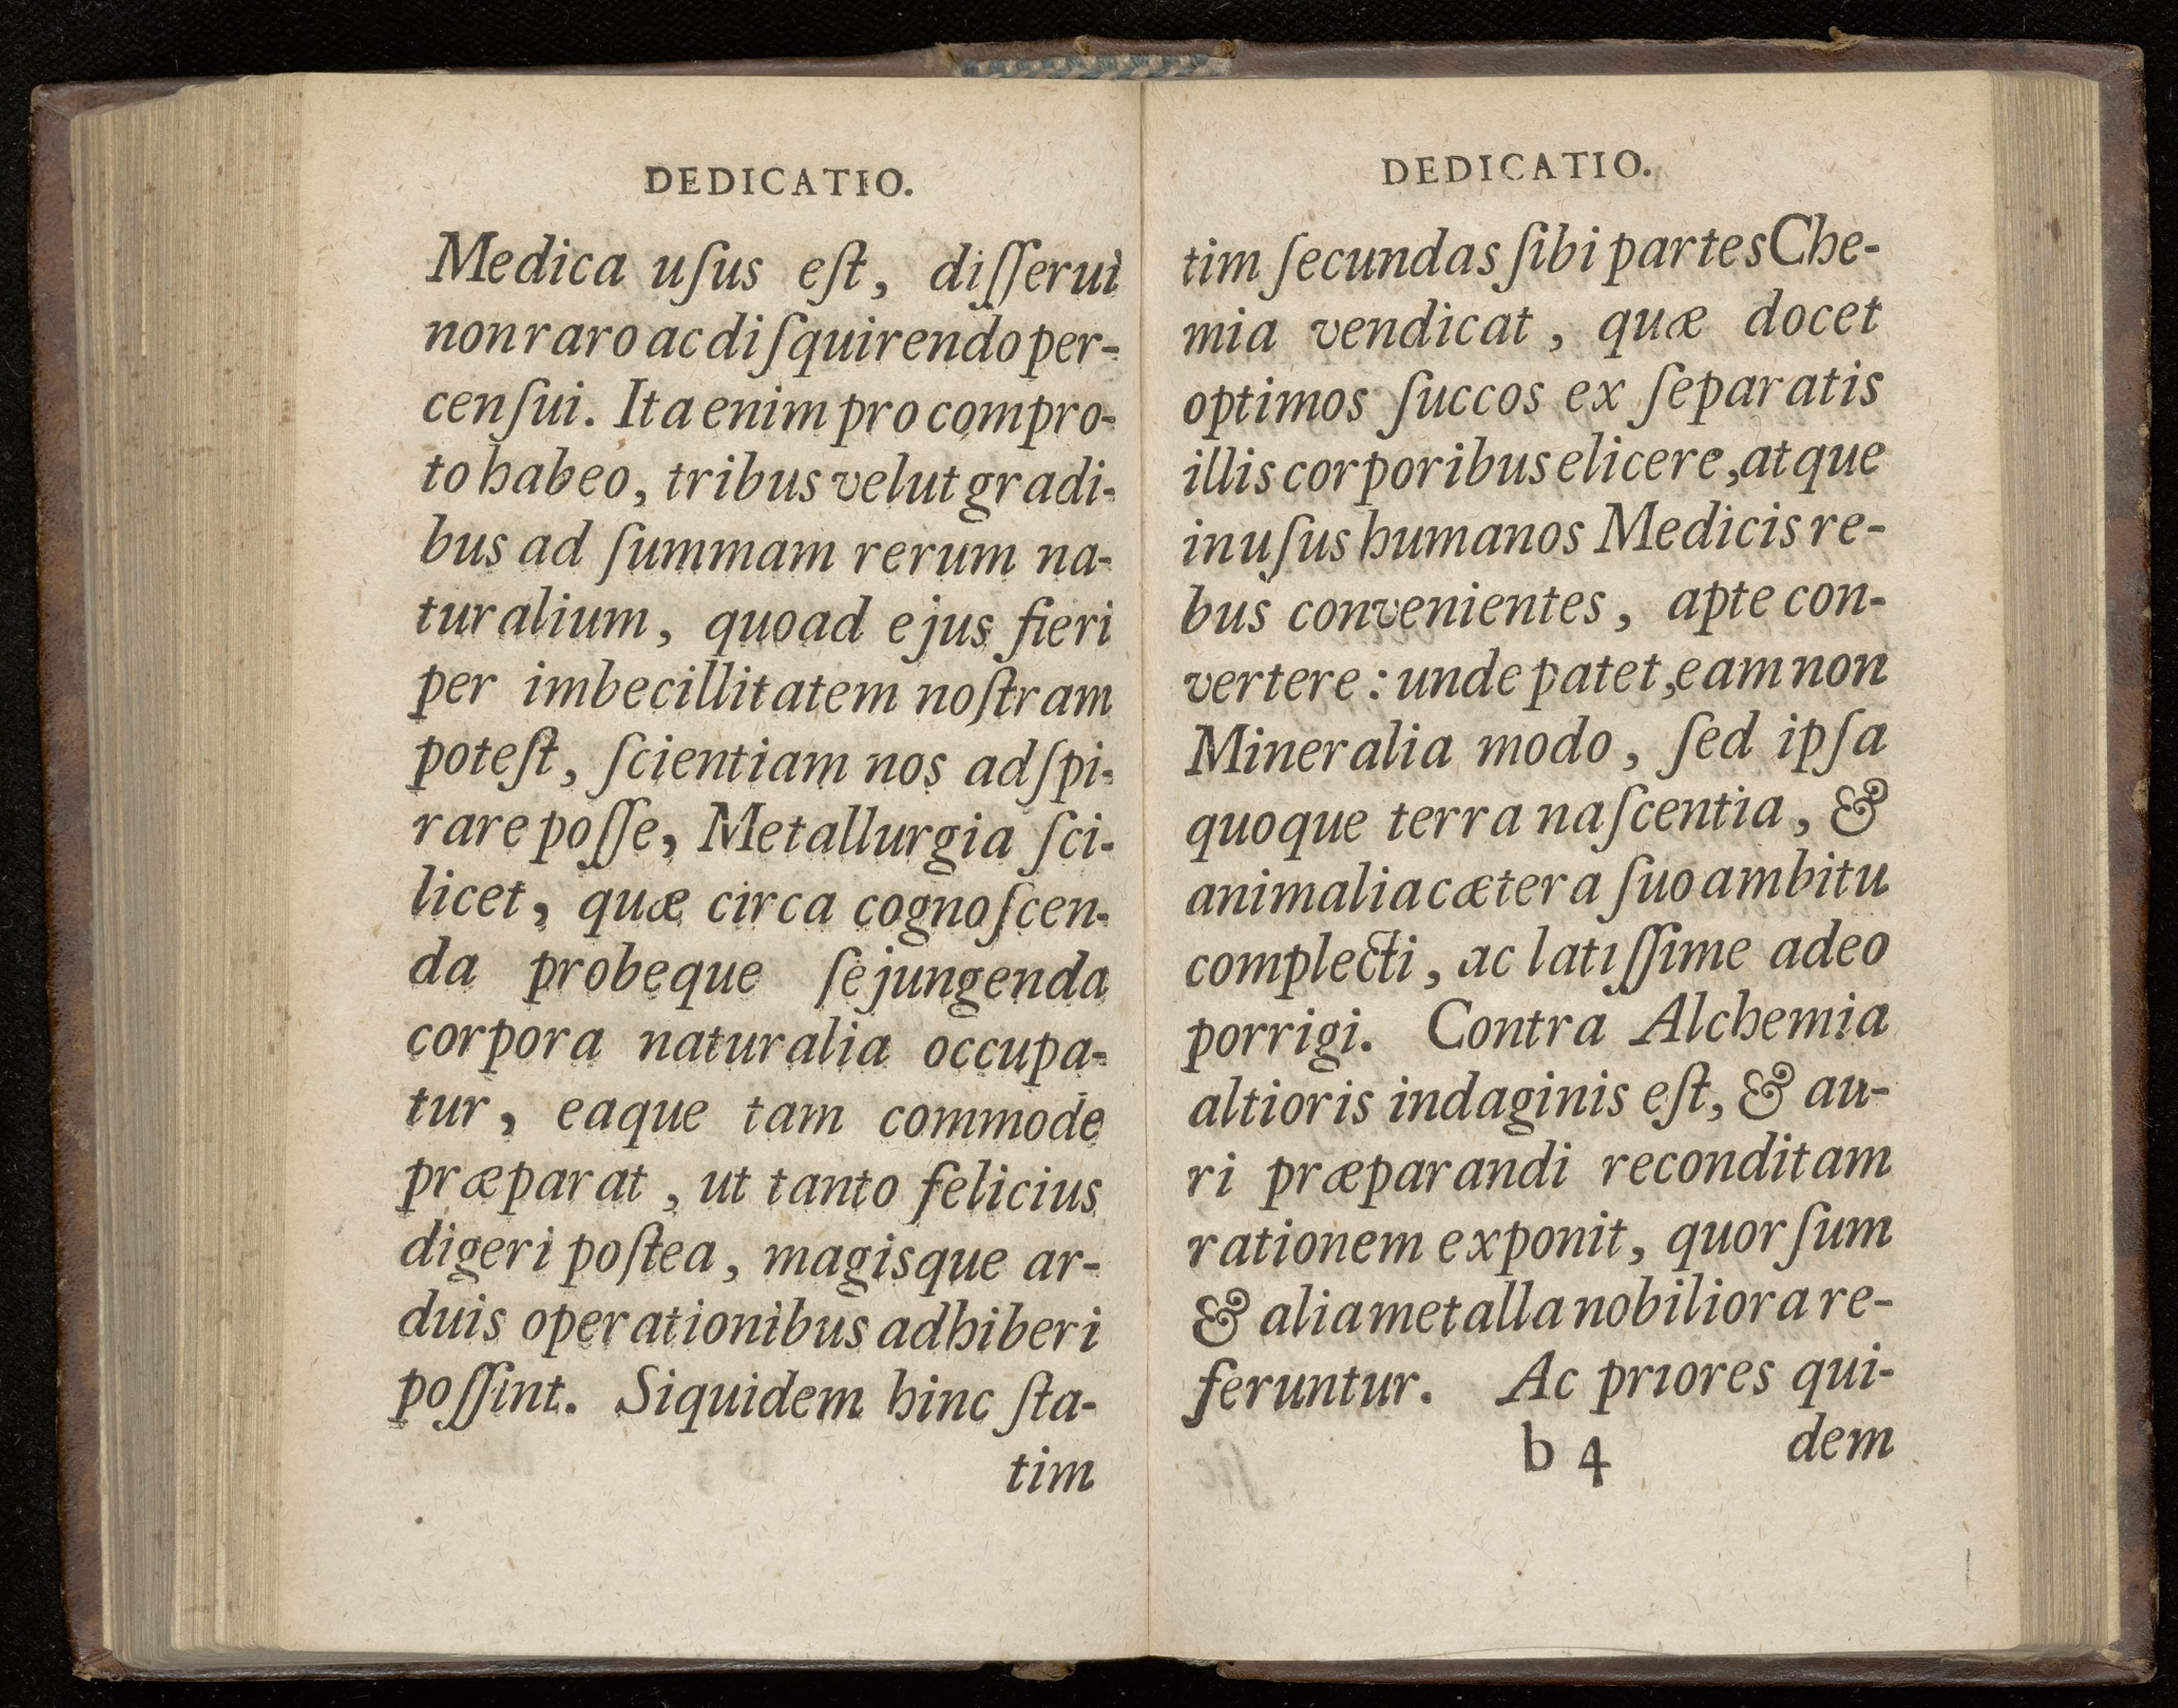 DEDICATIO.
Medica uſus eſt, diſſerui
non raro ac diſquirendo per-
cenſui. Ita enim pro compro-
to habeo, tribus velut gradi-
bus ad ſummam rerum na-
turalium, quoad ejus fieri
per imbecillitatem noſtram
poteſt, ſcientiam nos adſpi-
rare poſſe, Metallurgia ſci-
licet, quæ circa cognoſcen-
da probeque ſejungenda
corpora naturalia occupa-
tur, eaque tam commode
præparat, ut tanto felicius
digeri poſtea, magisque ar-
duis operationibus adhiberi
poſſint. Siquidem hinc ſta-
tim
DEDICATIO.
tim ſecundas ſibi partes Che-
mia vendicat, quæ docet
optimos ſuccos ex ſeparatis
illis corporibus elicere, atque
in uſus humanos Medicis re-
bus convenientes, apte con-
vertere: unde patet, eam non
Mineralia modo, ſed ipſa
quoque terra naſcentia, &
animalia cætera ſuo ambitu
complecti, ac latiſſime adeo
porrigi. Contra Alchemia
altioris indaginis eſt, & au-
ri præparandi reconditam
rationem exponit, quorſum
& alia metalla nobiliora re-
feruntur. Ac priores qui-
b 4 dem